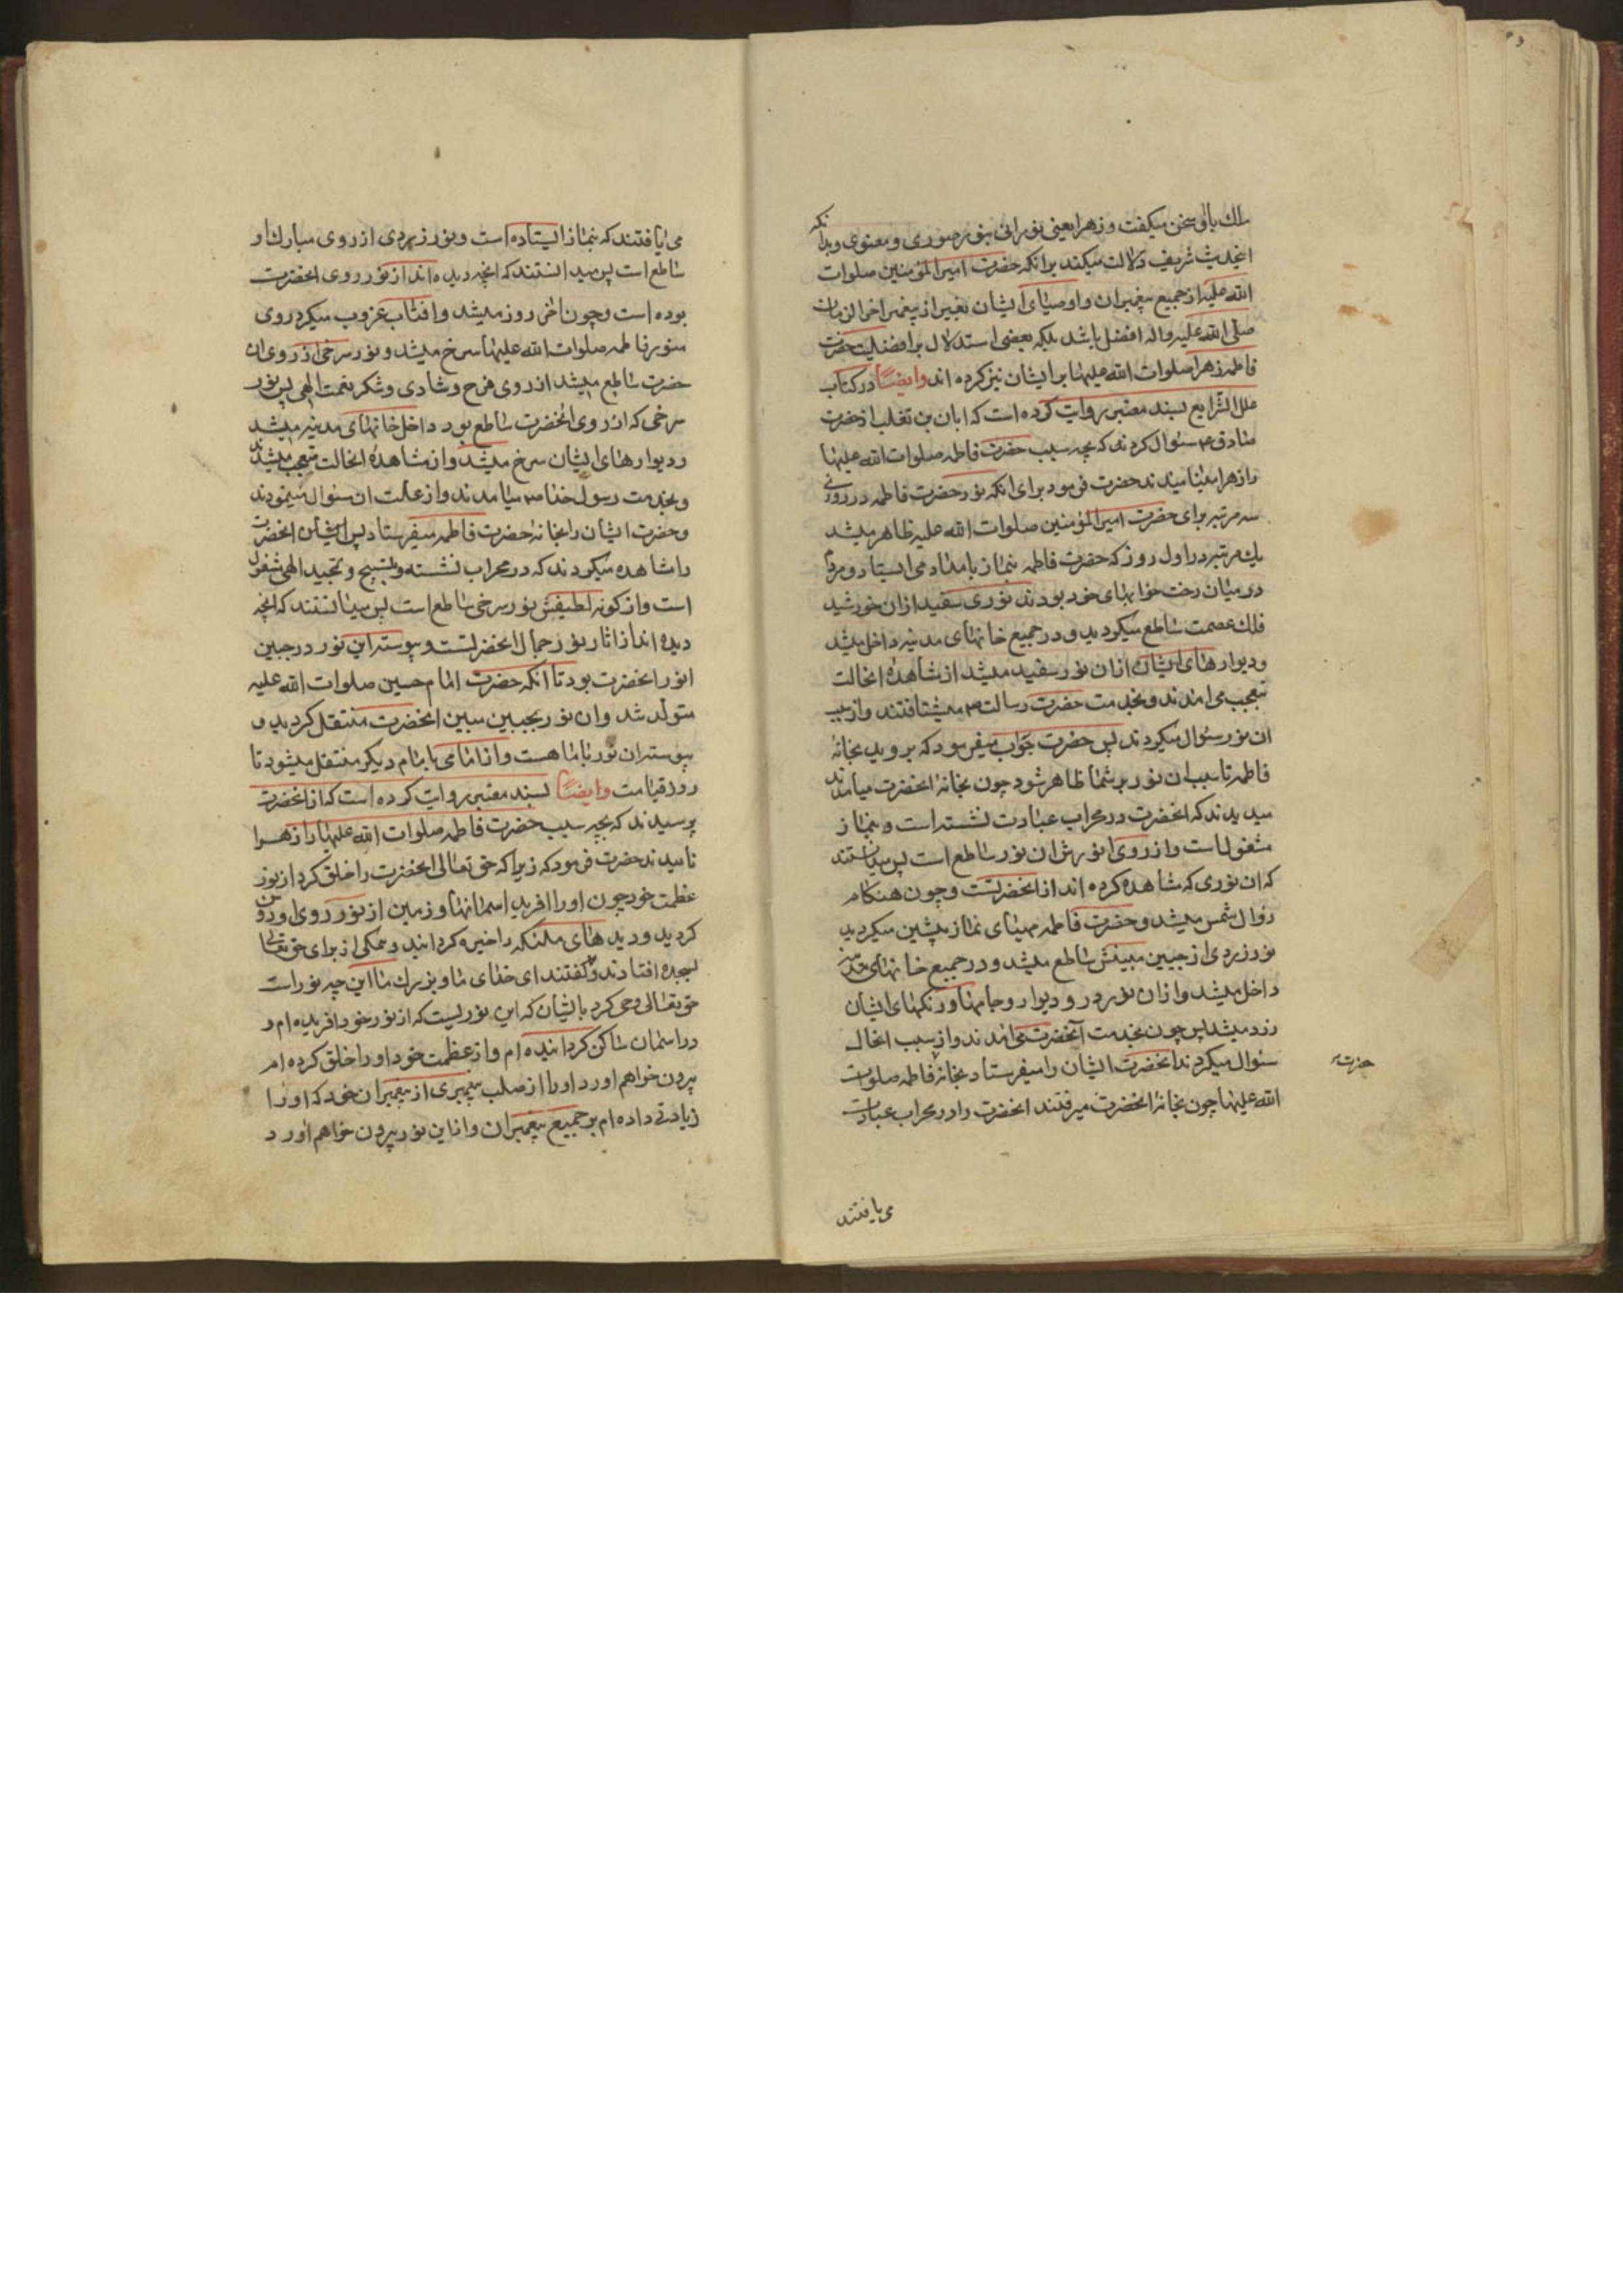 ملك باو سخن ميكفت و زهرا يعنى نورانى بنور صورى و معنوى و بدانكه
اينحديث شريف دلالت ميكند برانكه حضرت امير المؤمنين صلوات
الله عليه از جميع پيغمبران و اوصياى ايشان بغير از پيغمبر اخر الزمان
صلى الله عليه واله افضل باشد بلكه بعضى استدلال بر افضليت حضرت
فاطمه زهرا صلوات الله عليها بر ايشان نيز كرده اند وايضًا در كتاب
علل الشرايع بسند معتبر روايت كرده است كه ابان بن تغلب از حضرت
صادق ع سئوال كردند كه بچه سبب حضرت فاطمه صلوات الله عليها
را زهرا ميناميدند حضرت فرمود براى انكه نور حضرت فاطمه در روزى
سه مرتبه براى حضرت امير المؤمنين صلوات الله عليه ظاهر ميشد
يك مرتبه در اول روز كه حضرت فاطمه بنماز بامداد مى ايستاد و مردم
در ميان رخت خوابهاى خود بودند نورى سفيد از ان خورشيد
فلك عصمت ساطع ميكرديد و در جميع خانهاى مدينه داخل ميشد
و ديوارهاى ايشان از ان نور سفيد ميشد از مشاهدۀ انحالت
تعجب مى امدند و بخدمت حضرت رسالت ص ميشتافتند و از سبب
ان نور سئوال ميكردند پس حضرت جواب ميفرمود كه برويد بخانۀ
فاطمه تا سبب ان نور بر شما ظاهر شود چون بخانۀ انحضرت ميامدند
ميديدند كه انحضرت در محراب عبادت نشسته است و بنماز
مشغول است و از روى انورش ان نور ساطع است پس ميدانستند
كه ان نورى كه مشاهده كرده اند از انحضرتست و چون هنكام
زوال شمس ميشد و حضرت فاطمه مهياى نماز پيشين ميكرديد
نور زردى از جبين مبينش ساطع ميشد و در جميع خانهاى مدينه
داخل ميشد و از ان نور در و ديوار و جامها و رنكهاى ايشان
زرد ميشد پس چون بخدمت آنحضرت مى امدند و از سبب انحال
سئوال ميكردند انحضرت ايشان را ميفرستاد بخانۀ فاطمه صلوات
حضرت
الله عليها چون بخانۀ انحضرت ميرفتند انحضرت را در محراب عبادت
مى يافتند
مى يافتند كه بنماز ايستاده است و نور زردى از روى مبارك او
ساطع است پس ميدانستند كه انچه ديده اند از نور روى انحضرت
بوده است و چون اخر روز ميشد و افتاب غروب ميكرد روى
منور فاطمه صلوات الله عليها سرخ ميشد و نور سرخى از روى ان
حضرت ساطع ميشد از روى فرح و شادى و شكر نعمت الهى پس نور
سرخى كه از روى انحضرت ساطع بود داخل خانهاى مدينه ميشد
و ديوارهاى ايشان سرخ ميشد و از مشاهدۀ انحالت تعجب ميشدند
و بخدمت رسول خدا ص ميامدند و از علت ان سئوال مينمودند
و حضرت ايشان را بخانۀ حضرت فاطمه ميفرستاد پس ايشان انحضرت
را مشاهده ميكردند كه در محراب نشسته و بتسبيح و تمجيد الهى مشغول
است و از كونه لطيفش نور سرخى ساطع است پس ميدانستند كه انچه
ديده اند از اثار نور جمال انحضرتست و پيوسته اين نور در جبين
انور انحضرت بود تا انكه حضرت امام حسين صلوات الله عليه
متولد شد و ان نور بجبين مبين انحضرت منتقل كرديد و
پيوسته ان نور با ما هست و از امامى بامام ديكر منتقل ميشود تا
روز قيامت وايضًا بسند معتبر روايت كرده است كه از انحضرت
پرسيدند كه بچه سبب حضرت فاطمه صلوات الله عليها را زهرا
ناميدند حضرت فرمود كه زيرا كه حق تعالى انحضرت را خلق كرد از نور
عظمت خود چون او را افريد اسمانها و زمين از نور روى او روشن
كرديد و ديدهاى ملئكه را خيره كردانيد و همكى از براى حق تعالى
بسجده افتادند و كفتند اى خداى ما و بزرك ما اين چه نور است
حق تعالى وحى كرد بايشان كه اين نوريست كه از نور خود افريده ام و
در اسمان ساكن كردانيده ام و از عظمت خود او را خلق كرده ام
بيرون خواهم اورد او را از صلب پيغمبرى از پيغمبران خود كه او را
زيادتى داده ام بر جميع پيغمبران و از اين نور بيرون خواهم اورد